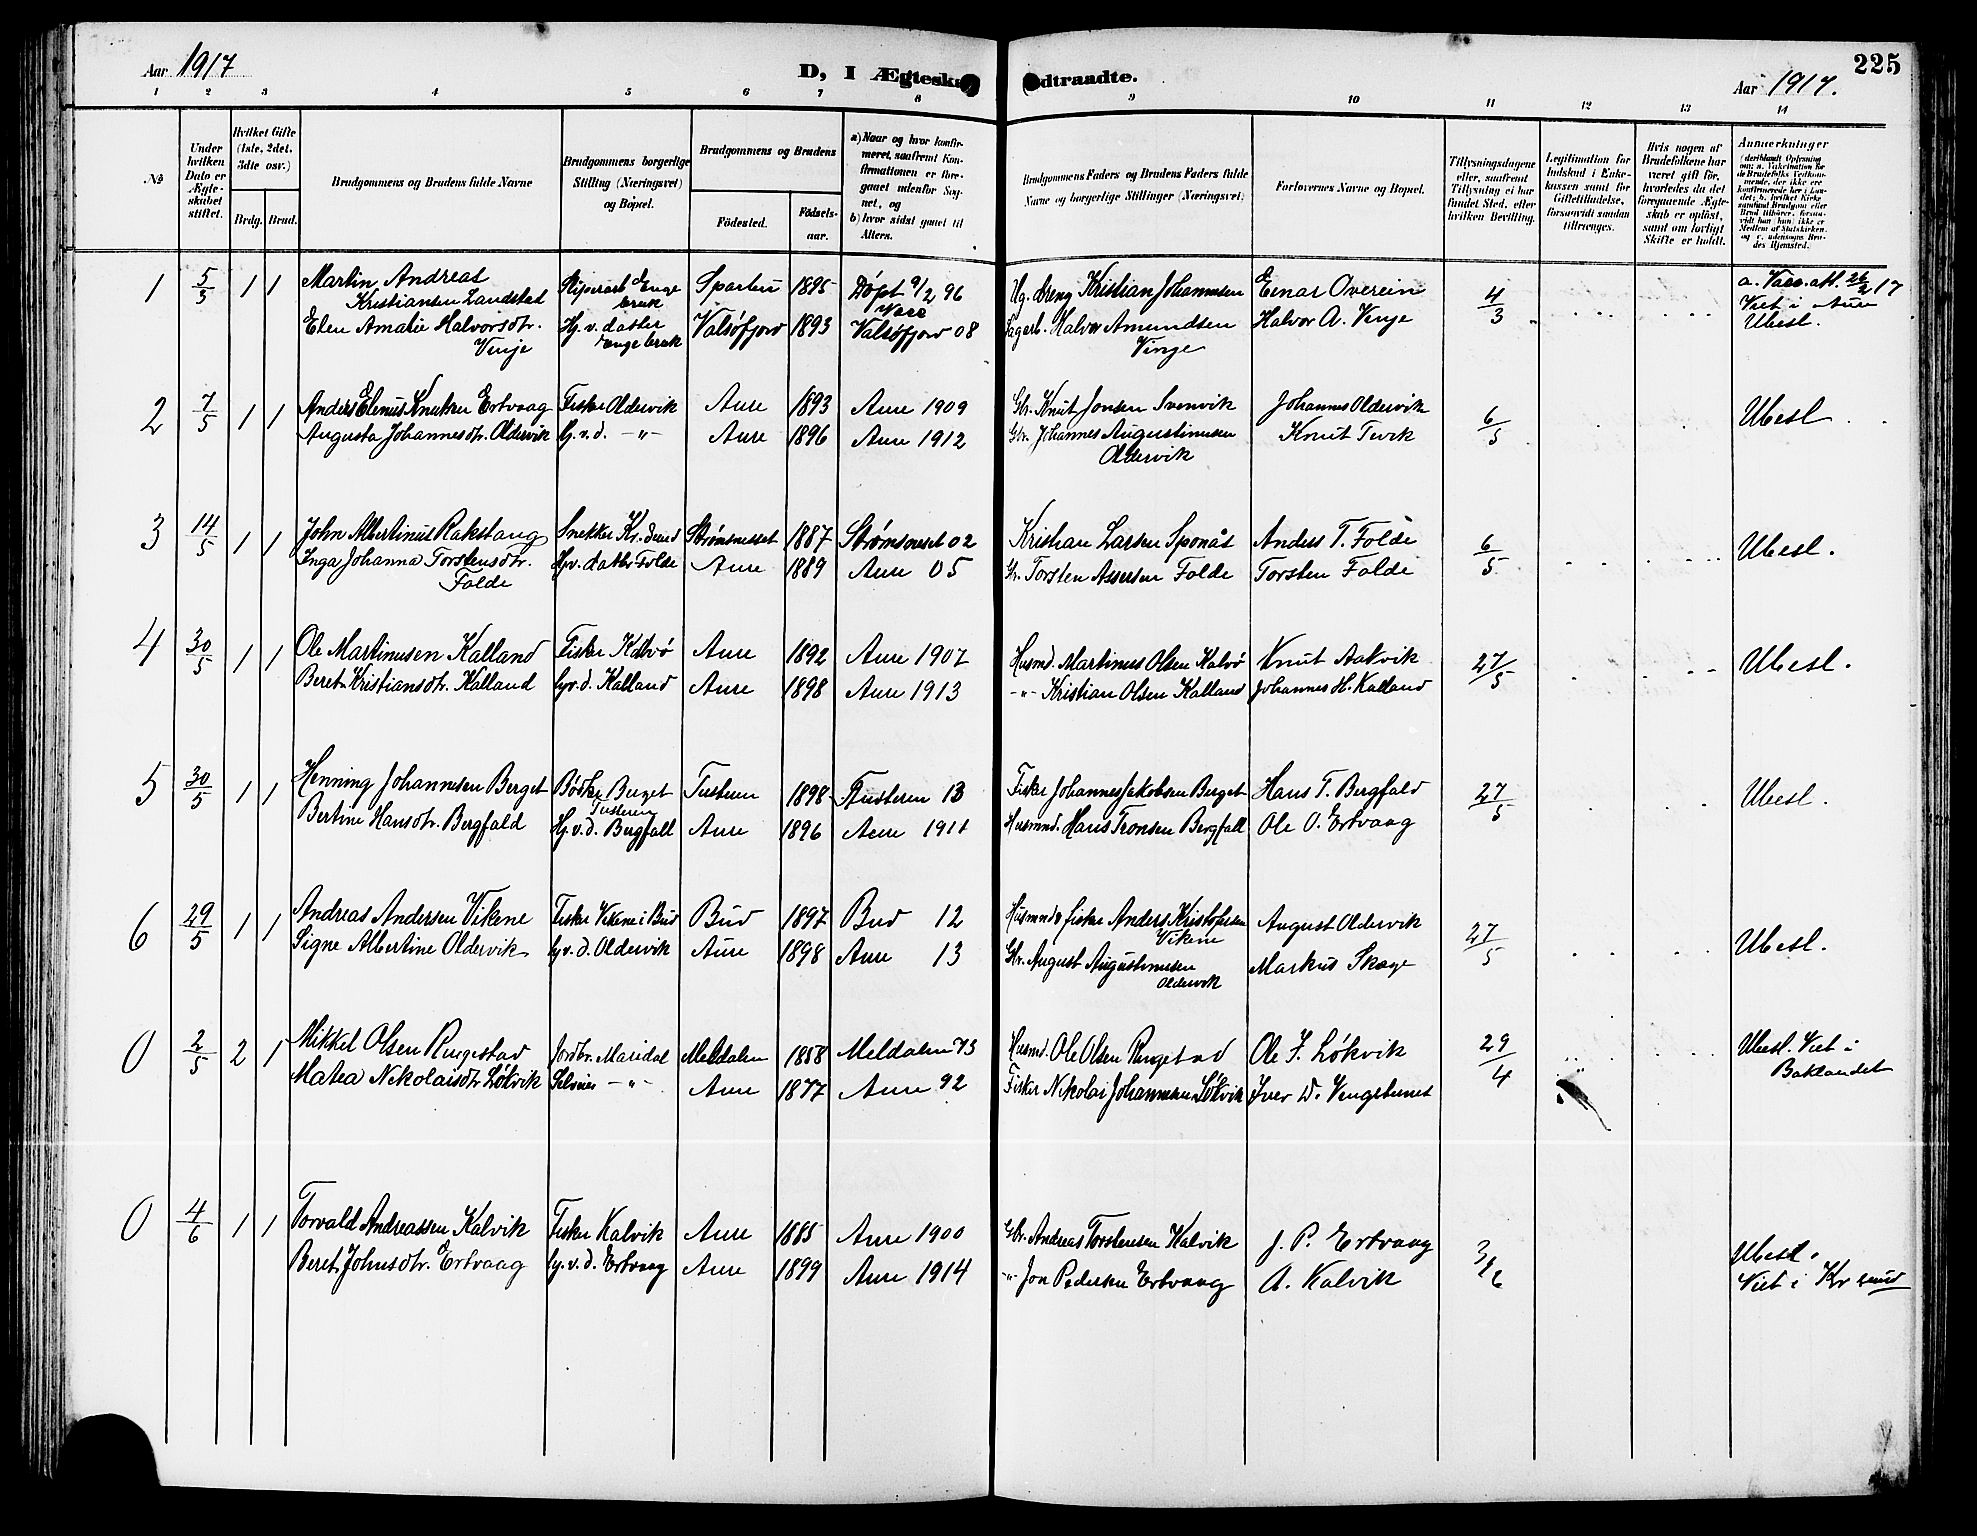 Aar 1917
D, I Ægteska
dtraadte.
Aar 1917.
225
1 2 3 4 5 6 7 8 9 10 11 12 13 14
№
Under hvilken Dato er Ægteskabet stiftet.
Hvilket Gifte (1ste, 2det, 3dte osv.)
Brdg. Brud.
Brudgommens og Brudens fulde Navne
Brudgommens borgerlige Stilling (Næringsvei) og Bopæl.
Brudgommens og Brudens
Fødested.
Fødselsaar.
a) Naar og hvor konfirmeret, saafremt Konfirmationen er foregaaet udenfor Sognet, og
b) hvor sidst gaaet til Alters.
Brudgommens Faders og Brudens Faders fulde Navne og borgerlige Stillinger (Næringsvei)
Forlovernes Navne og Bopæl.
Tillysningsdagene eller, saafremt Tillysning ei har fundet Sted, efter hvilken Bevilling.
Legitimation for Indskud i Enkekassen samt for Giftetilladelse, forsaavidt saadan tiltrænges.
Hvis nogen af Brudefolkene har været gift før, hvorledes da det foregaaende Ægteskab er opløst, samt om lovligt Skifte er holdt.
Anmærkninger
1 5/3 1 1 Martin Andreas Kristiansen Landsted Sparbu 1895 Døpt 9/2 96 Kristian Johannesen Einar Overein 4/3 a. Vacc. att. 26/2 17
Elen Amalie Halvorsdtr. Vinje Hj. v. datter Valsøfjord 1893 Valsøfjord 08 Halvor Amundsen Vinje Halvor A. Vinje Viet i Aure Ubesl.
2 7/5 1 1 Anders Elenus Knutsen Ertvaag Fisker Oldervik Aure 1893 Aure 1909 Gbr. Knut Jonsen Svenvik Johannes Oldervik 6/5 Ubesl.
Augusta Johannesdtr. Oldervik hj. v. d. -"- Aure 1896 Aure 1912 Gbr. Johannes Augustinusen Oldervik Knut Tevik
3 14/5 1 1 John Albertinus Rakstang Snekker Kr.sund Strømsneset 1887 Strømsneset 02 Kristian Larsen Sponås Anders T. Folde 6/5 Ubesl.
Inga Johanna Torstensdtr. Folde Hjv. datter Folde Aure 1889 Aure 05 Gbr. Torsten Assersen Folde Torsten Folde
4 30/5 1 1 Ole Martinusen Kalland Fisker Kalvø Aure 1892 Aure 1907 Husmd. Martinus Olsen Kalvø Knut Aakvik 27/5 Ubesl.
Beret Kristiansdtr. Kalland hjv. d. Kalland Aure 1898 Aure 1913 -"- Kristian Olsen Kalland Johannes H. Kalland
5 30/5 1 1 Henning Johannesen Berget Bødker Berget Tusteren Tusteren 1898 Tusteren 13 Fisker Johannes Jakobsen Berget Hans T. Bergfald 27/5 Ubesl.
Bertine Hansdtr. Bergfald Hj. v. d. Bergfall Aure 1896 Aure 1911 Husmnd. Hans Tronsen Bergfall Ole O. Ertvaag
6 29/5 1 1 Andreas Andersen Vikene Fisker Vikene i Bud Bud 1897 Bud 12 Husmnd & fisker Anders Kristofersen Vikene August Oldervik 27/5 Ubesl.
Signe Albertine Oldervik hjv. d. Oldervik Aure 1898 Aure 13 Gbr. August Augustinusen Oldervik Markus Skage
0 2/5 2 1 Mikkel Olsen Ringestad Jordbr. Maridal Meldalen 1858 Meldalen 73 Husmd. Ole Olsen Ringestad Ole J. Løkvik 29/4 Ubesl. Viet i Baklandet
Matea Nikolaisdtr Løkvik -"- Aure 1877 Aure 92 Fisker Nikolai Johannesen Løkvik Iver D. Vengstunet
0 4/6 1 1 Torvald Andreassen Kalvik Fisker Kalvik Aure 1885 Aure 1900 Gbr. Andreas Torstensen Kalvik J. P. Ertvaag 3/6 Ubesl.
Beret Johnsdtr. Ertvaag hj. v. d. Ertvaag Aure 1899 Aure 1914 -"- Jon Pedersen Ertvaag A. Kalvik Viet i Kr sund